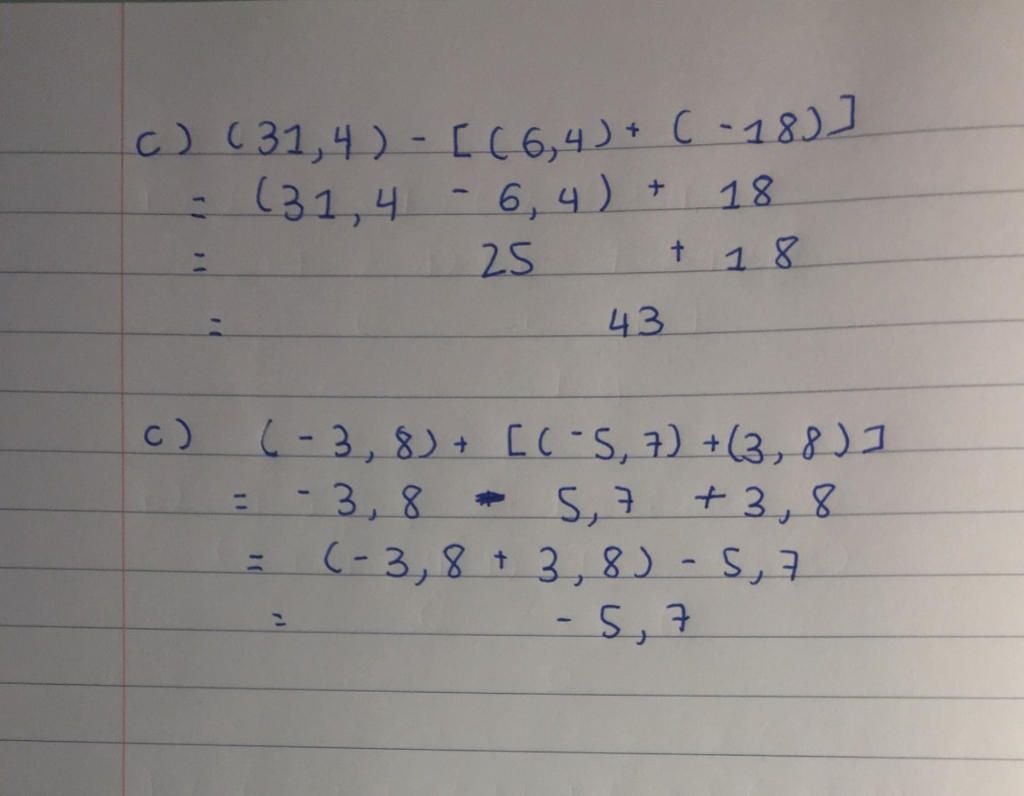 c) (31,4) - [(6,4) + (-18)]
= (31,4 - 6,4) + 18
= 25 + 18
= 43
c) (-3,8) + [(-5,7) +(3,8)]
= -3,8 - 5,7 + 3,8
= (-3,8 + 3,8) - 5,7
= -5,7